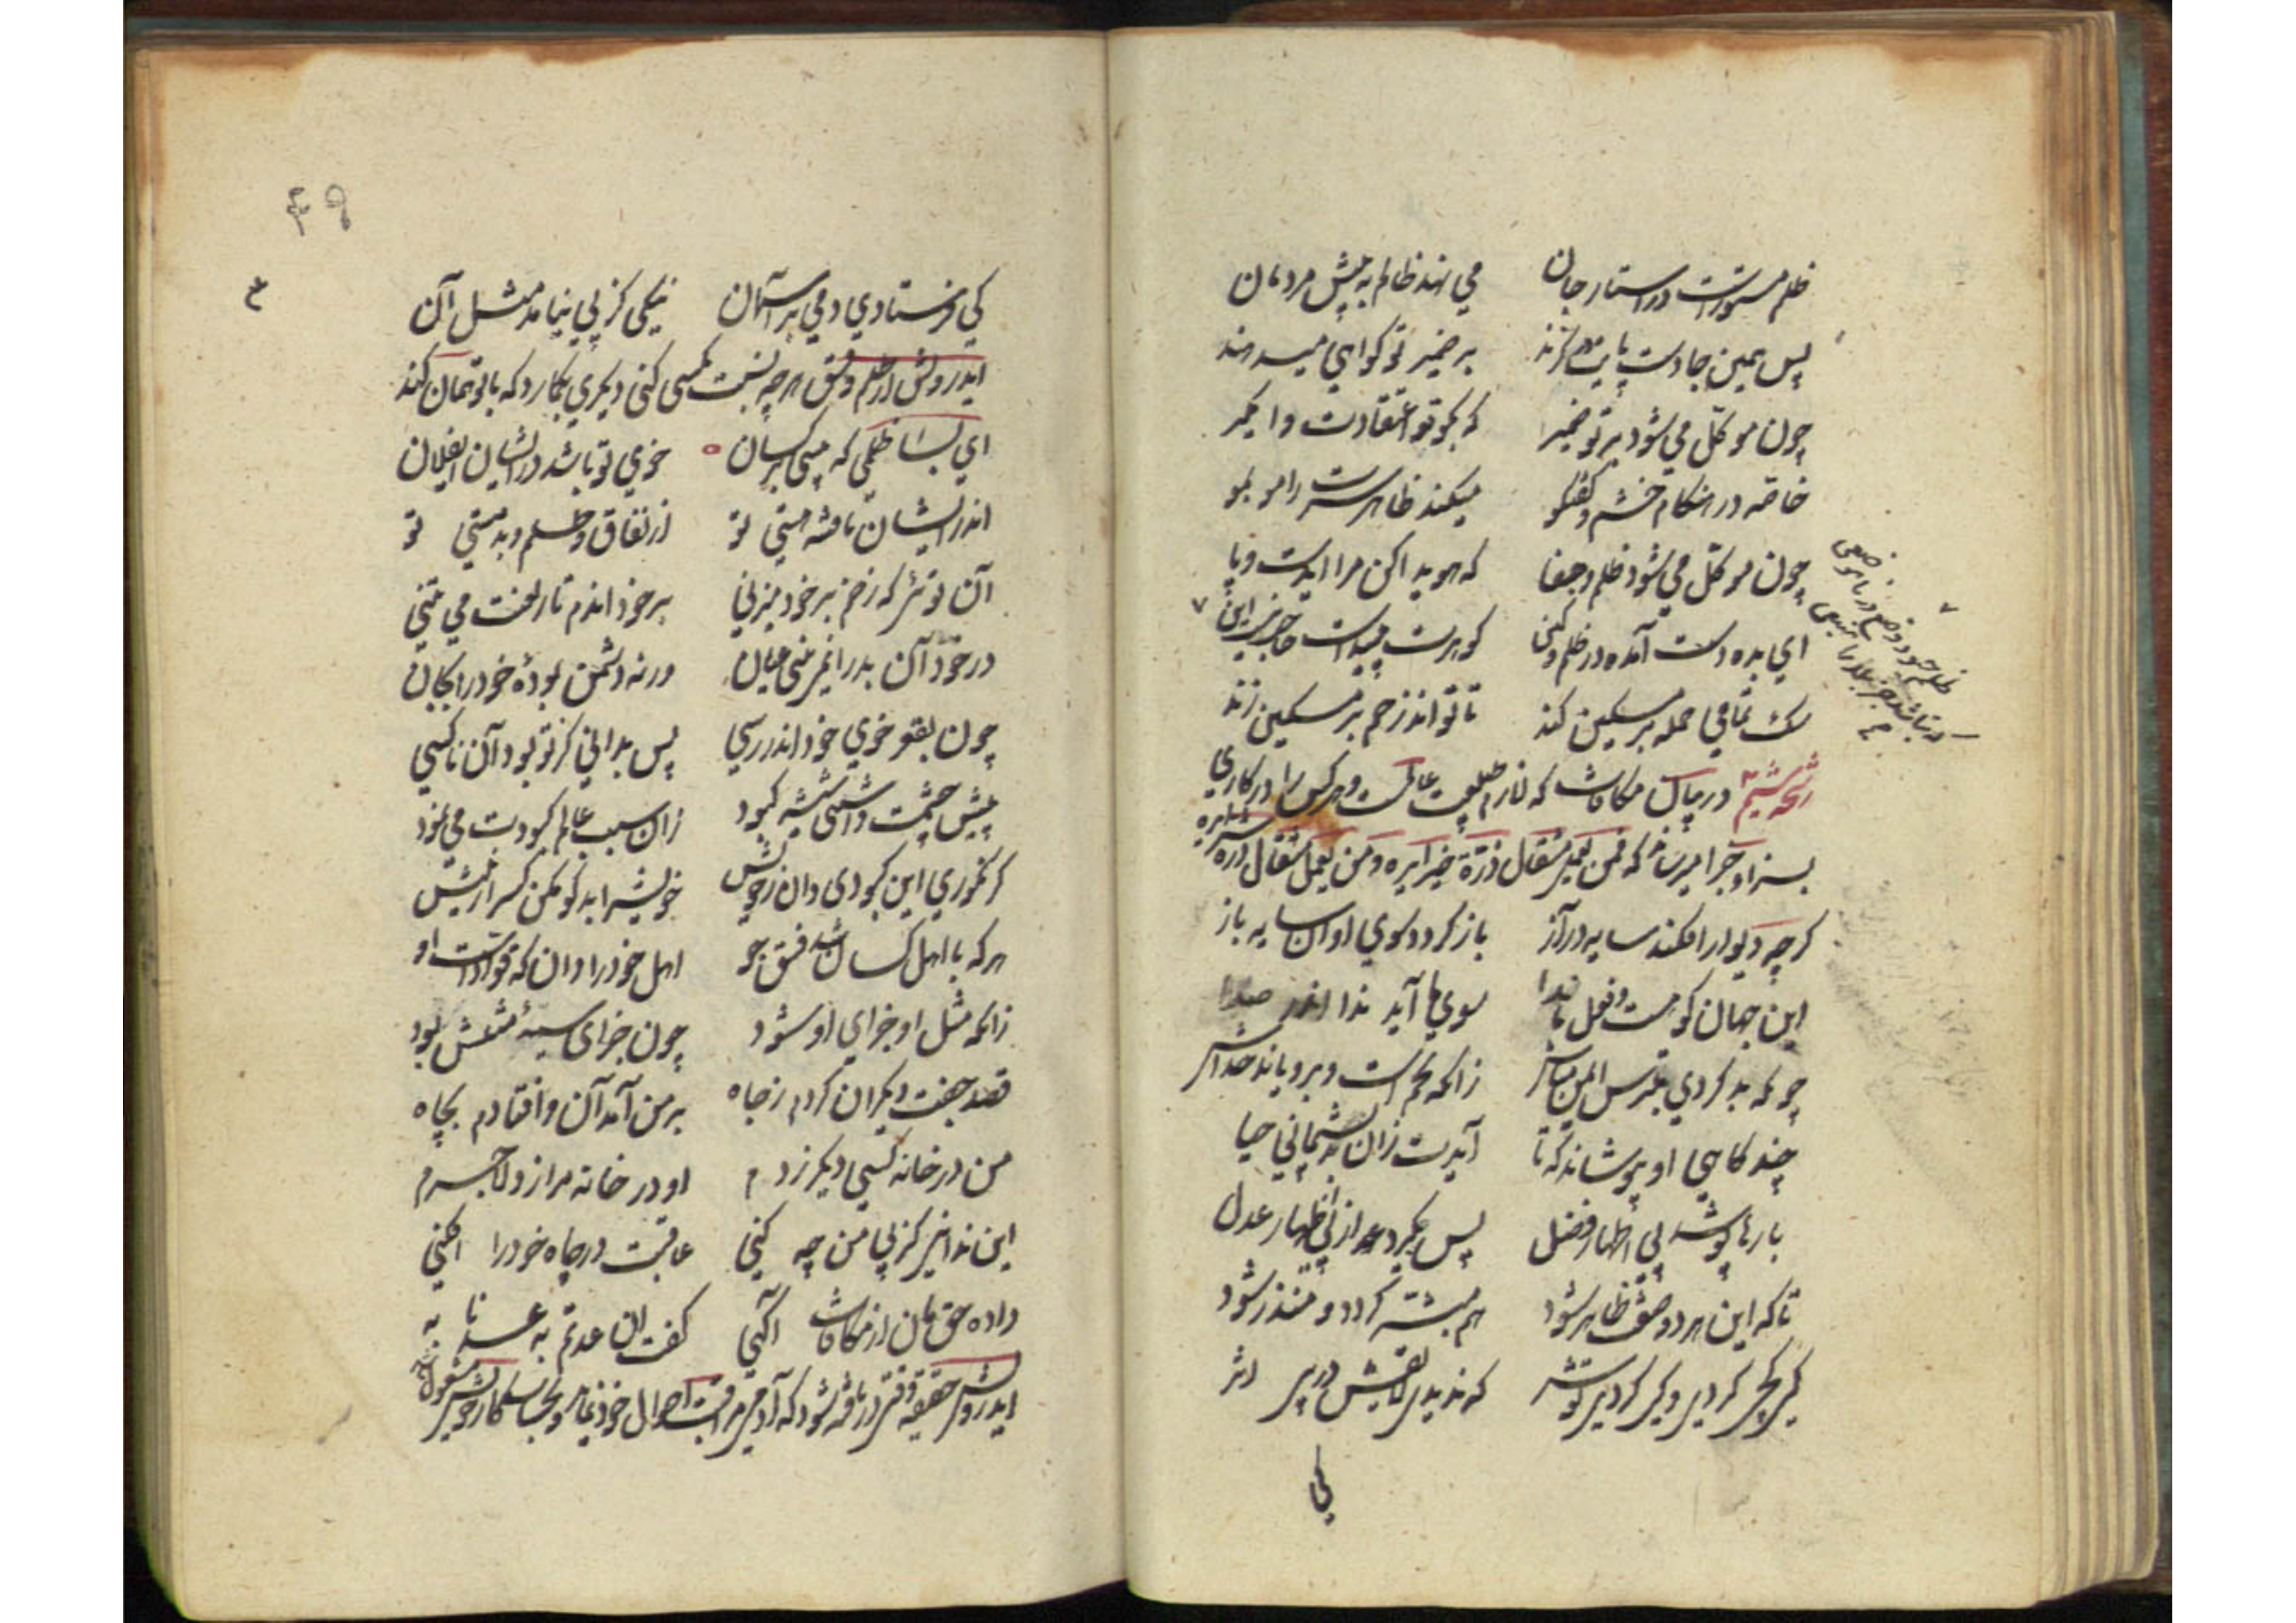 ظلم مستورست در اسرار جان می نهد ظالم به پیش مردمان
پس همین جا دست و پایت در گزند بر ضمیر تو گواهی میدهند
چون موکل می شود بر تو ضمیر که بگو تو اعتقادت وا مگیر
خاصه در هنگام خشم و گفتگو میکند ظاهر سرت را مو بمو
چون موکل می شود ظلم و جفا که هویدا کن مرا ای دست و پا
ای بده دست آمده در ظلم و کین گوهرت پیداست حاجت نیست این
سگ تمامی حمله بر مسکین کند تا تواند زخم بر مسکین زند
رشحه ششم در بیان مکافات که لازم طبیعت عالمست و هر کس را در کاری
بسزا و جزا میرساند که فمن یعمل مثقال ذرة خیرا یره و من یعمل مثقال ذرة شرا یره
گرچه دیوار افکند سایه دراز باز گردد سوی او آن سایه باز
این جهان کوهست و فعل ما ندا سوی ما آید ندا اندر صدا
چونکه بد کردی بترس ایمن مباش زانکه تخم است و برویاند خداش
چند گاهی او بپوشاند که تا آیدت زان بد پشیمانی حیا
بارها پوشد پی اظهار فضل پس بگیرد از پی اظهار عدل
تا که این هر دو صفت ظاهر شود هم مبشر گردد و منذر شود
کی کجی کردی و کی کردی تو شر که ندیدی لایقش در پی اثر
کی
۴۹
کی فرستادی دمی بر آسمان نیکی کز پی نیامد مثل آن
ایدرویش از ظلم و فسق هرچه نسبت بکسی کنی دیگری بکار دکه با تو همان کند
ای بسا ظلمی که بینی بر کسان خوی تو باشد در ایشان ای فلان
اندر ایشان تافته هستی تو از نفاق و ظلم و بد مستی تو
آن توئی که زخم بر خود میزنی بر خود اندم تار لعنت می تنی
در خود آن بد را نمی بینی عیان ورنه دشمن بودهٔ خود را بجان
چون بقعر خوی خود اندر رسی پس بدانی کز تو بود آن ناکسی
پیش چشمت داشتی شیشه کبود زان سبب عالم کبودت می نمود
گر نه کوری این کبودی دان ز خویش خویش را بد گو مگو کس را تو بیش
هر که با اهل کسان شد فسق جو اهل خود را دان که قوادست او
زانکه مثل او جزای او شود چون جزای سیئه مثلش بود
قصد جفت دیگران کردم ز جاه بر من آمد آن و افتادم بچاه
من در خانه کسی دیگر زدم او در خانه مرا زد لاجرم
این ندانی کز پی من چه کنی عاقبت در چاه خود را افکنی
داده حق مان از مکافات آگهی گفت ان عدتم به عدنا به
ایدرویش حقیقة وقتی دریافته شود که آدمی مراقبت احوال خود نماید و بحساب کار خویش مشغول